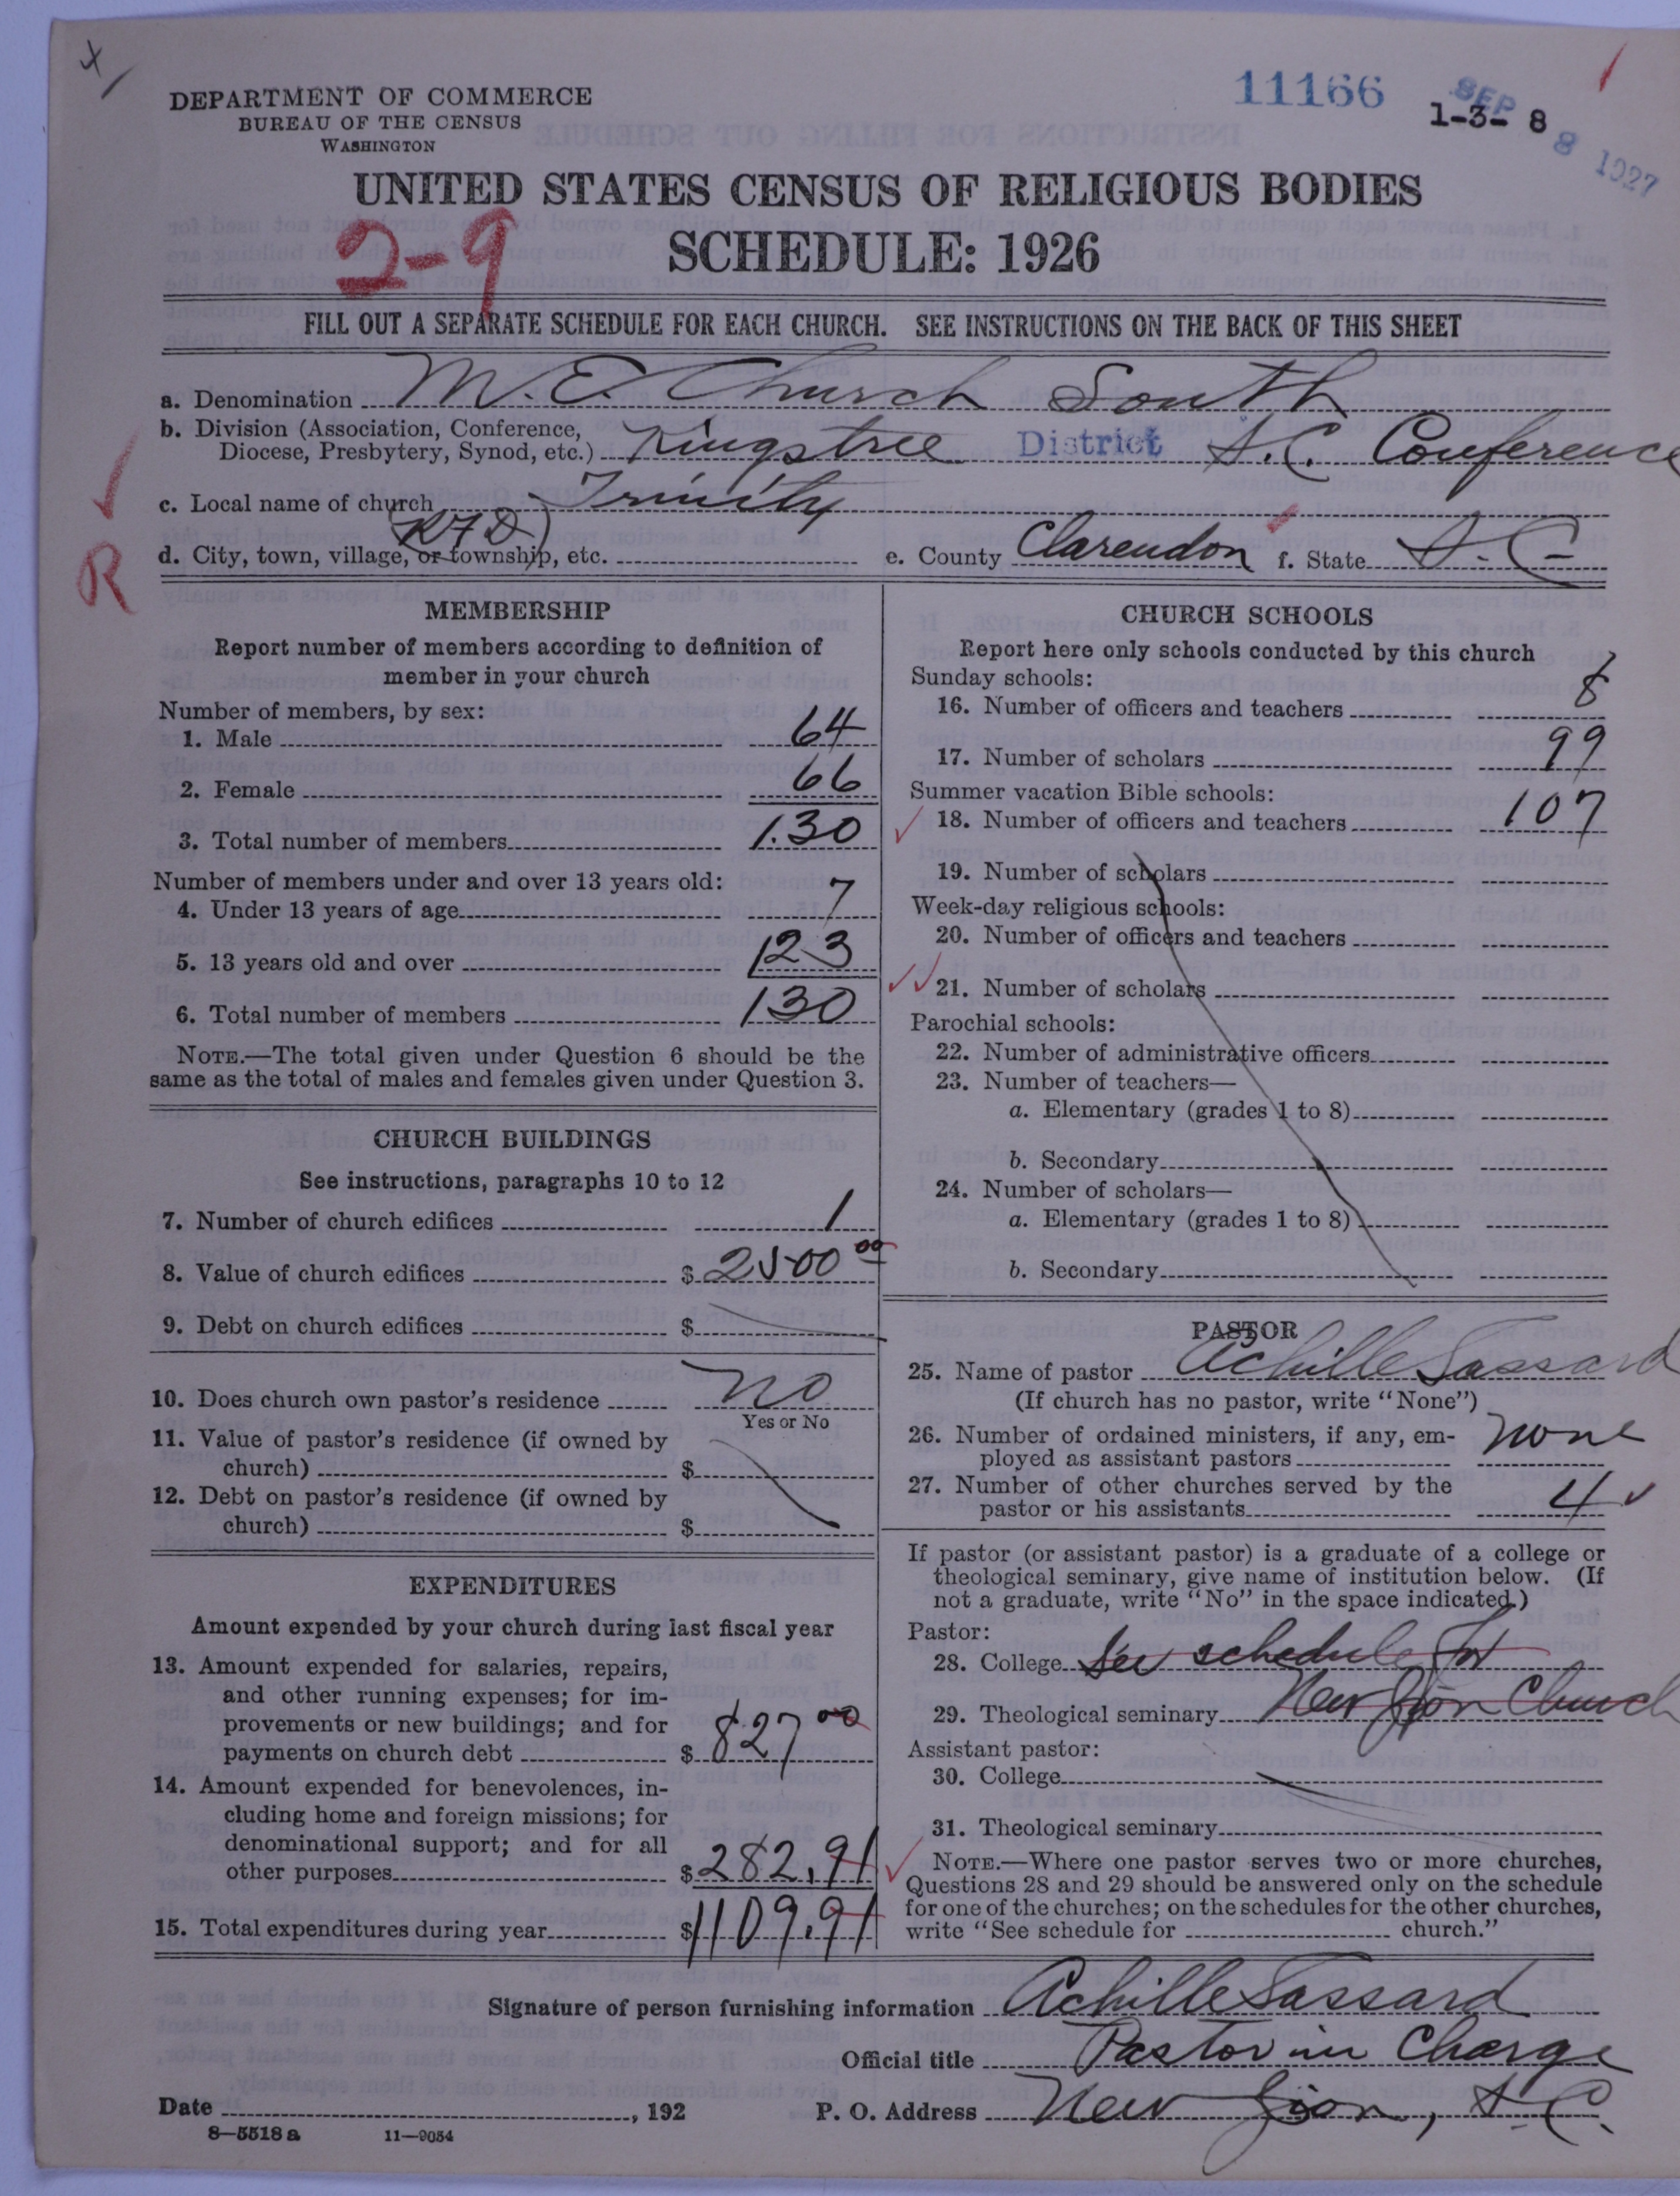 11166
1-3-8
SEP 8 1927
DEPARTMENT OF COMMERCE
BUREAU OF THE CENSUS
WASHINGTON
UNITED STATES CENSUS OF RELIGIOUS BODIES
SCHEDULE: 1926
2-9
FILL OUT A SEPARATE SCHEDULE FOR EACH CHURCH. SEE INSTRUCTIONS ON THE BACK OF THIS SHEET
a. Denomination M. E. Church South
b. Division (Association, Conference,
Diocese, Presbytery, Synod, etc.) Kingstree District S.C. Conference
c. Local name of church Trinity
R
d. City, town, village, or township, etc. (RFD) e. County Clarendon f. State S.C.
MEMBERSHIP
Report number of members according to definition of
member in your church
Number of members, by sex:
1. Male 64
2. Female 66
3. Total number of members 130
Number of members under and over 13 years old:
4. Under 13 years of age 7
5. 13 years old and over 123
6. Total number of members 130
NOTE.—The total given under Question 6 should be the
same as the total of males and females given under Question 3.
CHURCH BUILDINGS
See instructions, paragraphs 10 to 12
7. Number of church edifices 1
8. Value of church edifices $ 2500 00
9. Debt on church edifices $
10. Does church own pastor's residence no
Yes or No
11. Value of pastor's residence (if owned by
church) $
12. Debt on pastor's residence (if owned by
church) $
EXPENDITURES
Amount expended by your church during last fiscal year
13. Amount expended for salaries, repairs,
and other running expenses; for im-
provements or new buildings; and for
payments on church debt $ 827 00
14. Amount expended for benevolences, in-
cluding home and foreign missions; for
denominational support; and for all
other purposes $ 282.91
15. Total expenditures during year $ 1109.91
CHURCH SCHOOLS
Report here only schools conducted by this church
Sunday schools:
16. Number of officers and teachers 8
17. Number of scholars 99
Summer vacation Bible schools:
18. Number of officers and teachers 107
19. Number of scholars
Week-day religious schools:
20. Number of officers and teachers
21. Number of scholars
Parochial schools:
22. Number of administrative officers
23. Number of teachers—
a. Elementary (grades 1 to 8)
b. Secondary
24. Number of scholars—
a. Elementary (grades 1 to 8)
b. Secondary
PASTOR
25. Name of pastor Achille Sassard
(If church has no pastor, write "None")
26. Number of ordained ministers, if any, em-
ployed as assistant pastors none
27. Number of other churches served by the
pastor or his assistants 4
If pastor (or assistant pastor) is a graduate of a college or
theological seminary, give name of institution below. (If
not a graduate, write "No" in the space indicated.)
Pastor:
28. College See schedule for
29. Theological seminary New Zion Church
Assistant pastor:
30. College
31. Theological seminary
NOTE.—Where one pastor serves two or more churches,
Questions 28 and 29 should be answered only on the schedule
for one of the churches; on the schedules for the other churches,
write "See schedule for church."
Signature of person furnishing information Achille Sassard
Official title Pastor in Charge
Date , 192 P. O. Address New Zion, S.C.
8—5518 a 11—9054